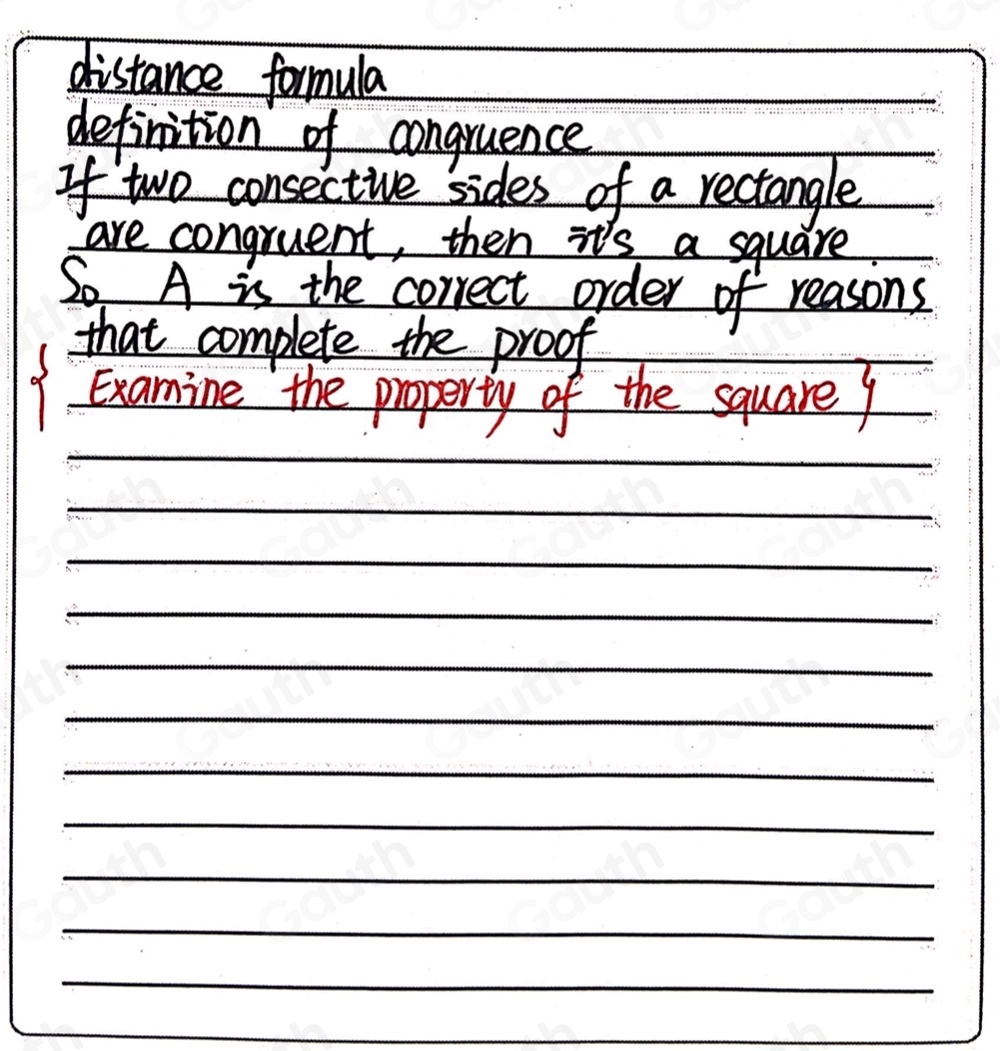 distance formula
definition of congruence
If two consective sides of a rectangle
are congruent, then it's a square.
So A is the correct order of reasons
that complete the proof
{ Examine the property of the square }